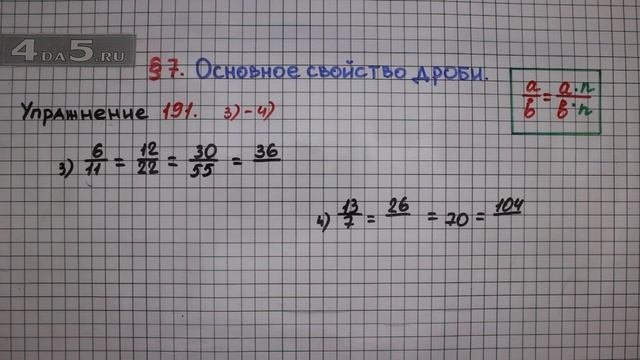 4DA5.RU
§7. Основное свойство дроби.
Упражнение 191. 3)-4)
a/b = a·n/b·n
3) 6/11 = 12/22 = 30/55 = 36/
4) 13/7 = 26/ = /70 = 104/